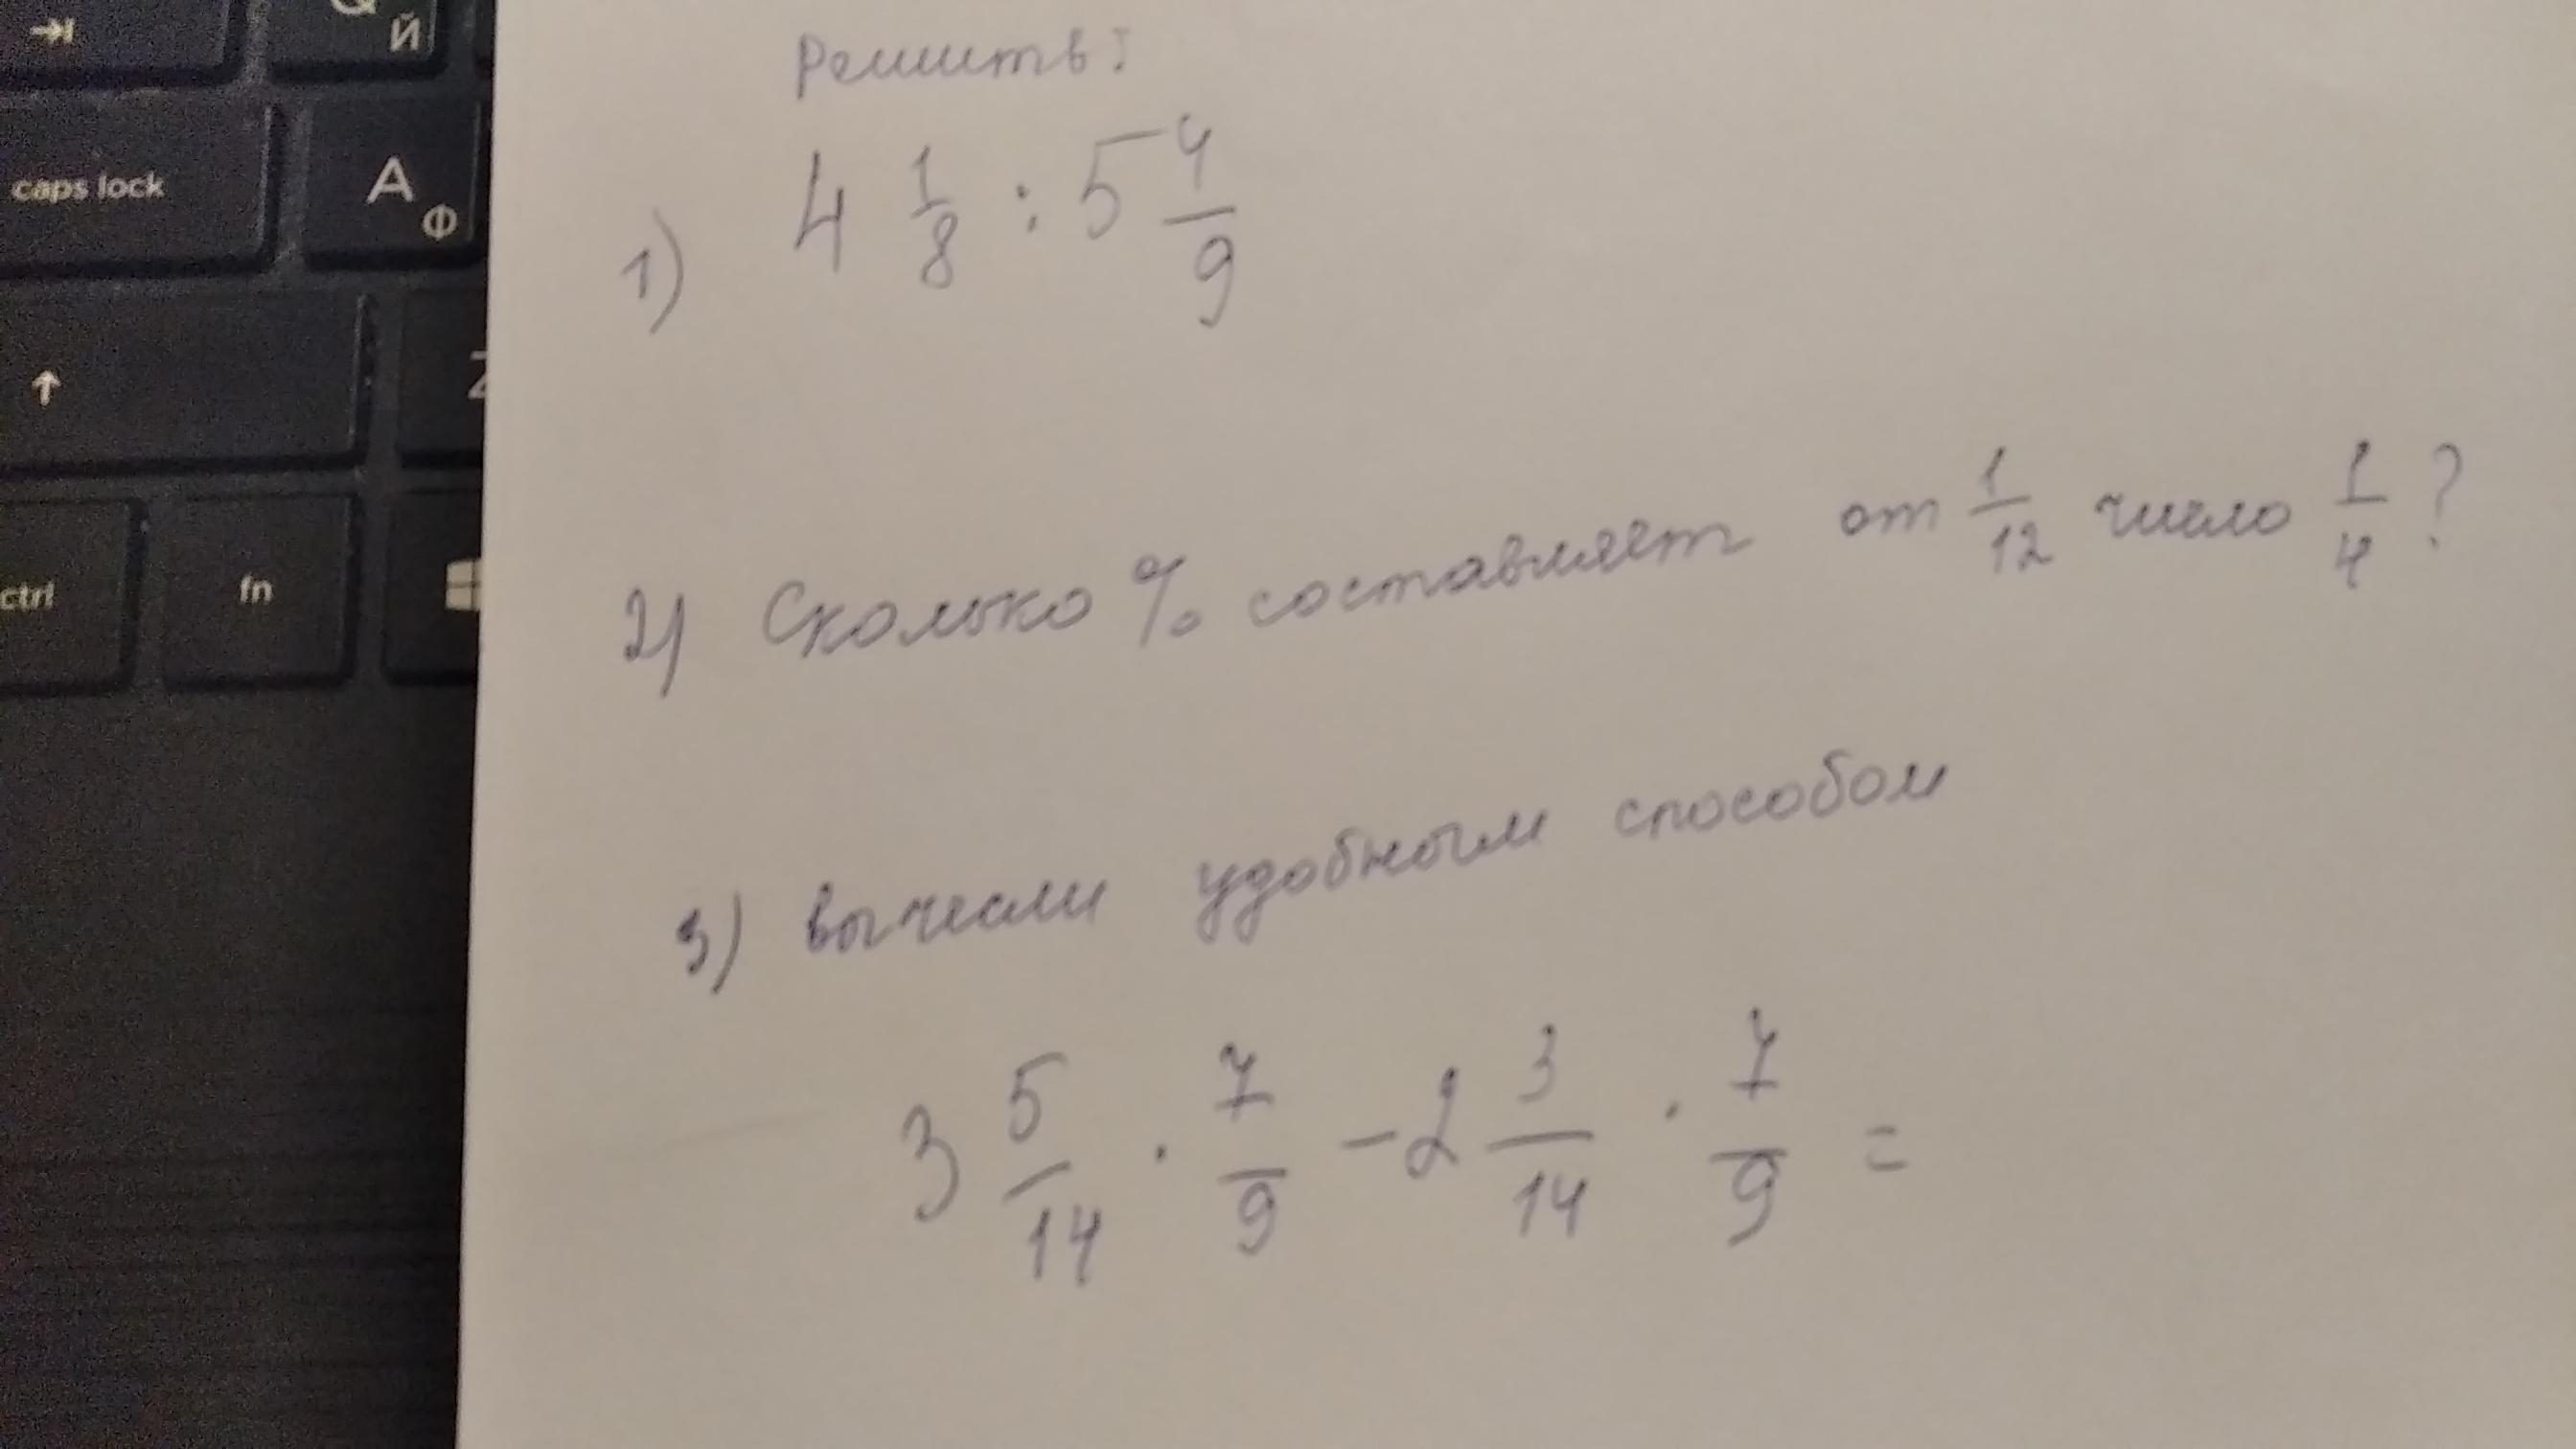 Й
caps lock
A
Ф
Z
ctrl
fn
Решить:
1) 4 1/8 : 5 4/9
2) Сколько % составляет от 1/12 число 1/4?
3) вычисли удобным способом
3 5/14 · 7/9 - 2 3/14 · 7/9 =